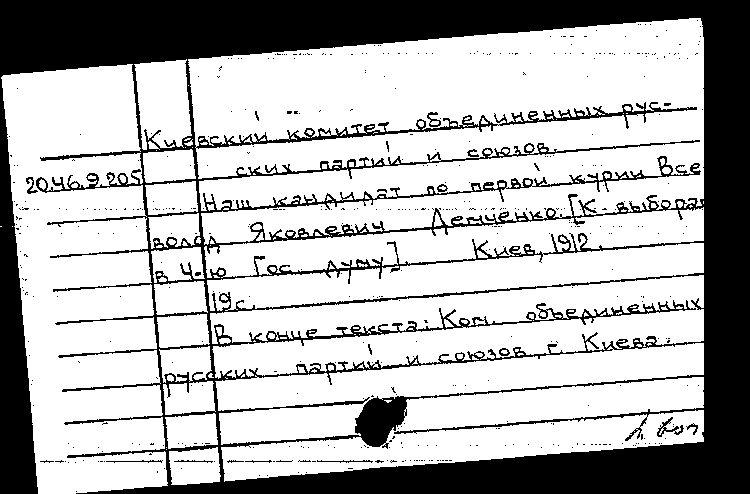 Киевский комитет объединенных рус-
ских партий и союзов.
20.46.9.205
Наш кандидат по первой курии Все
волод Яковлевич Демченко. [К выборам
в 4-ю Гос. думу]. Киев, 1912.
19с.
В конце текста: Ком. объединенных
русских партий и союзов г. Киева.